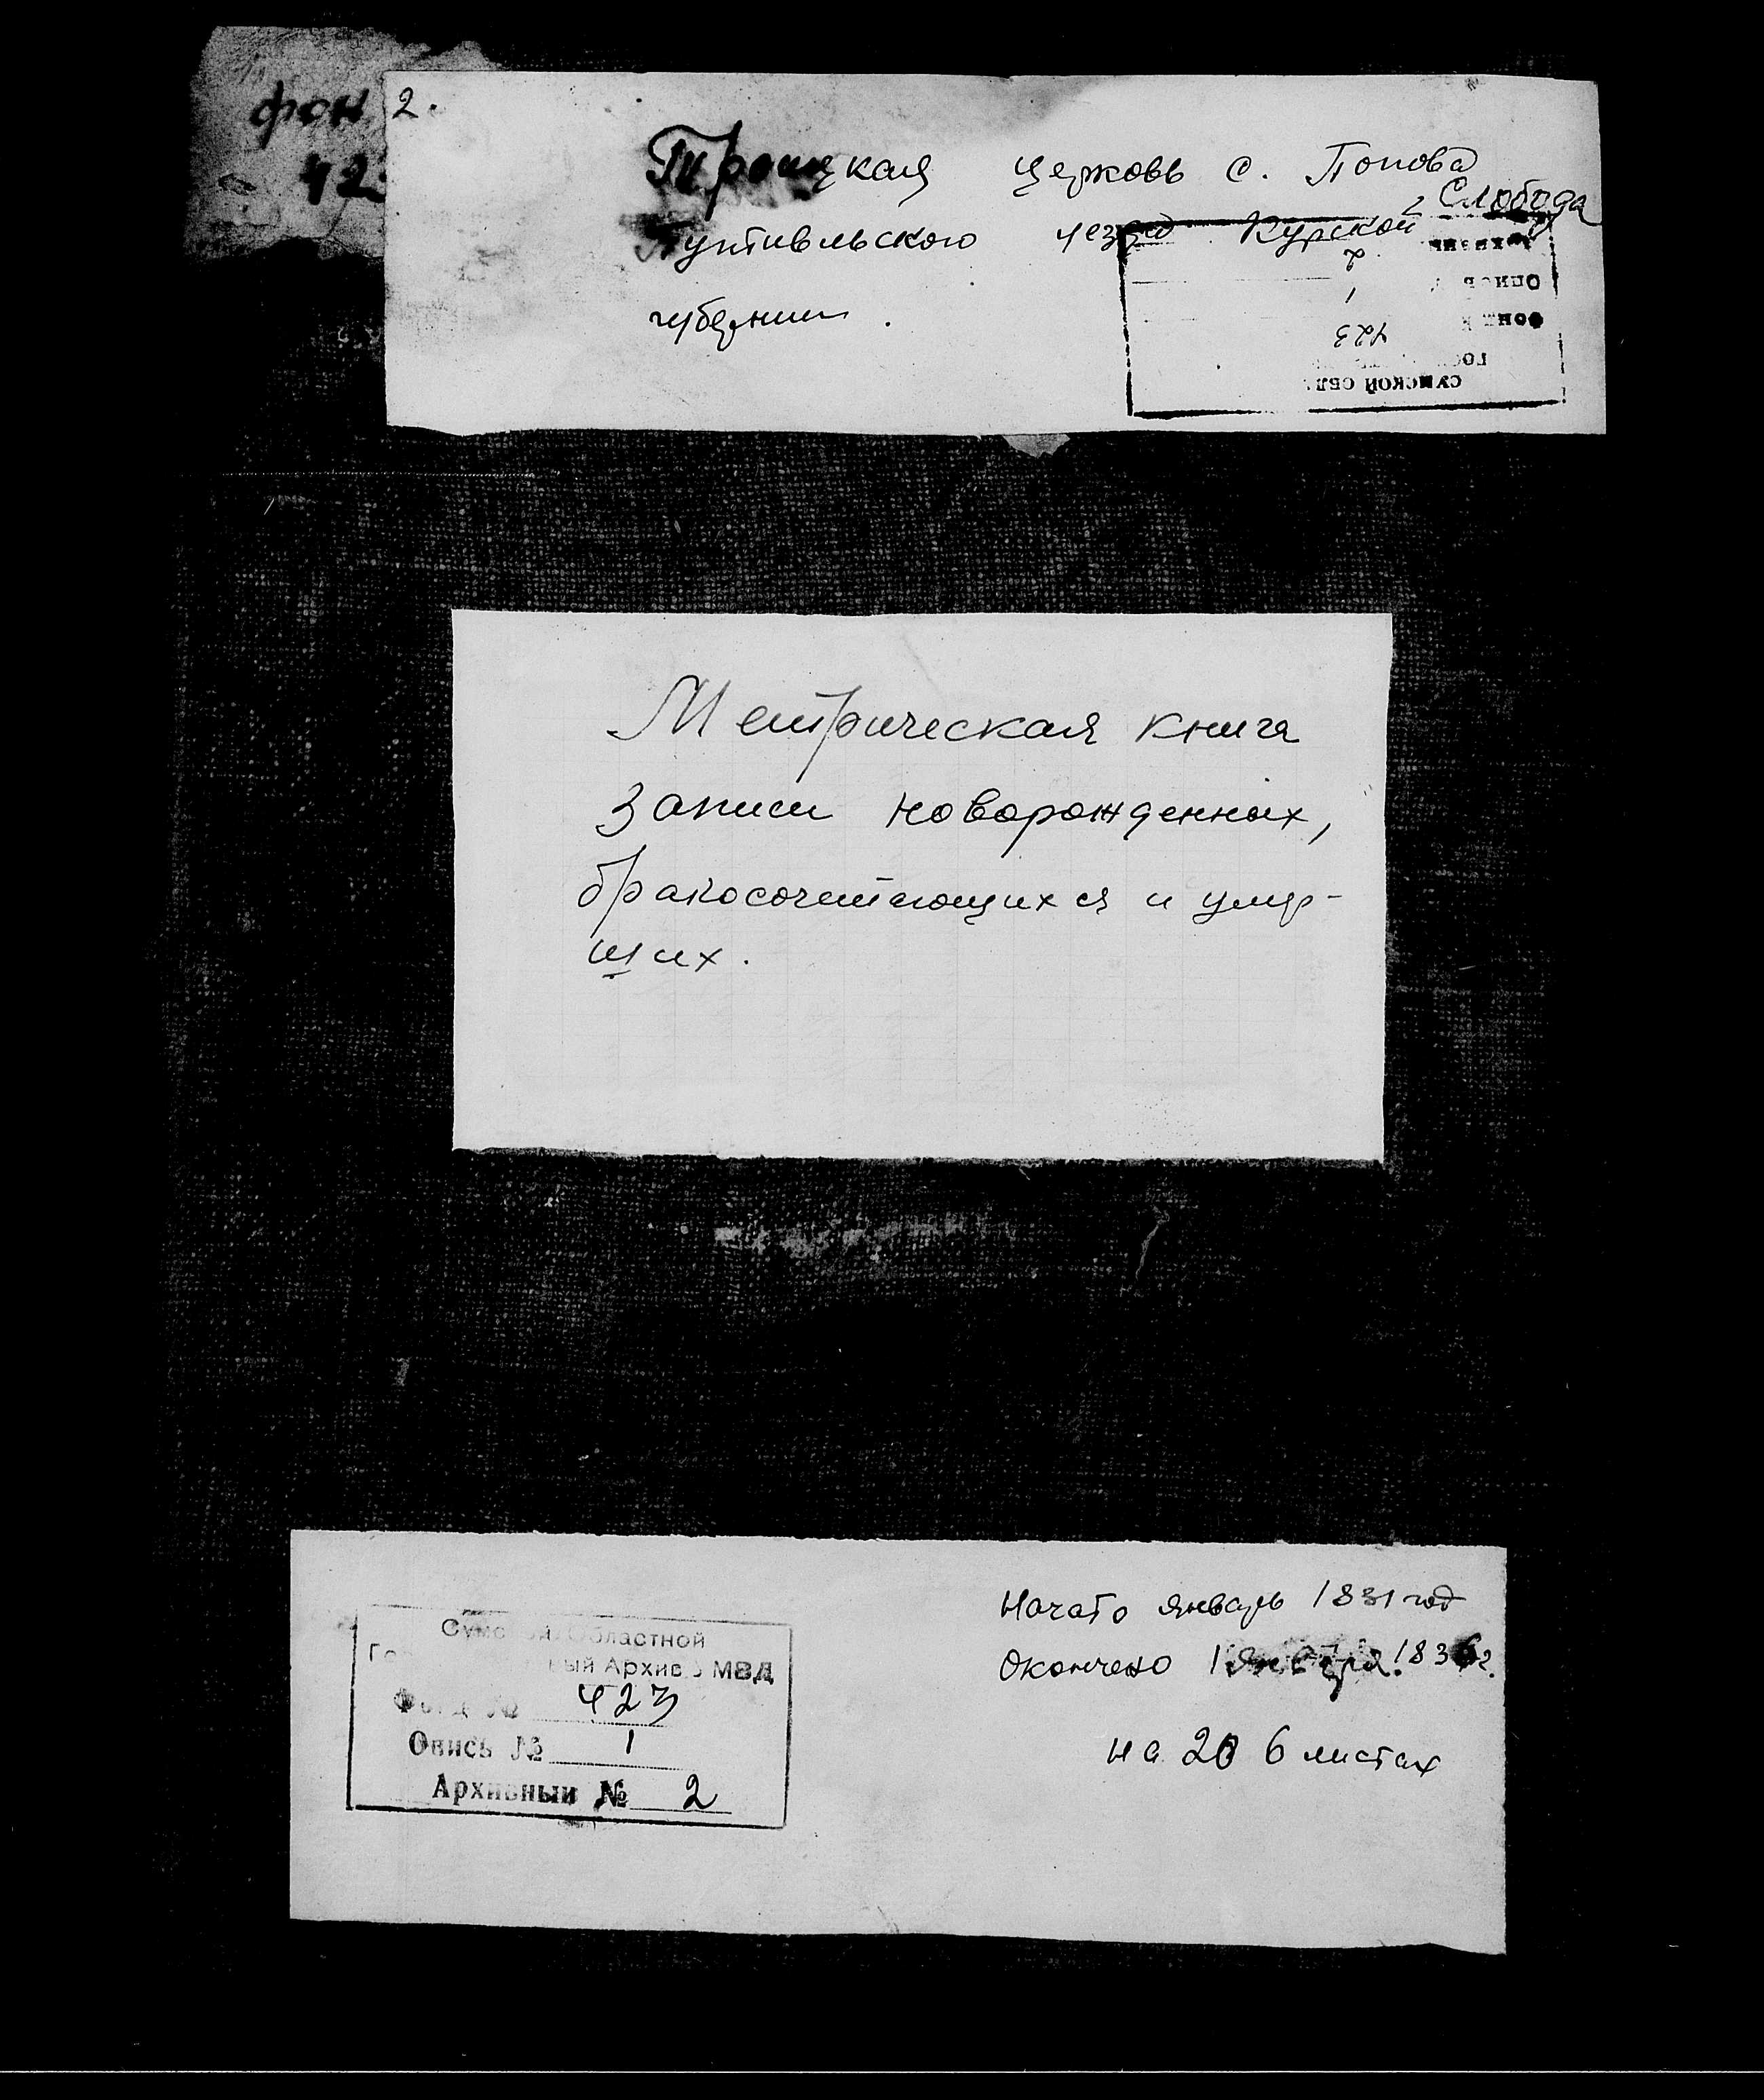 фон 2.
42
Троицкая церковь с. Попова
Слобода
Путивльского уезд Курской
губернии.
2
Опись 1
Фонд 423
Сумской обл.
Метрическая книга
записи новорожденных,
бракосочетающихся и умер-
ших.
Областной
ный Архив МВД
Фонд № 423
Опись № 1
Архивный № 2
Начато январь 1831 год
Окончено 1 января 1836 г.
на 206 листах